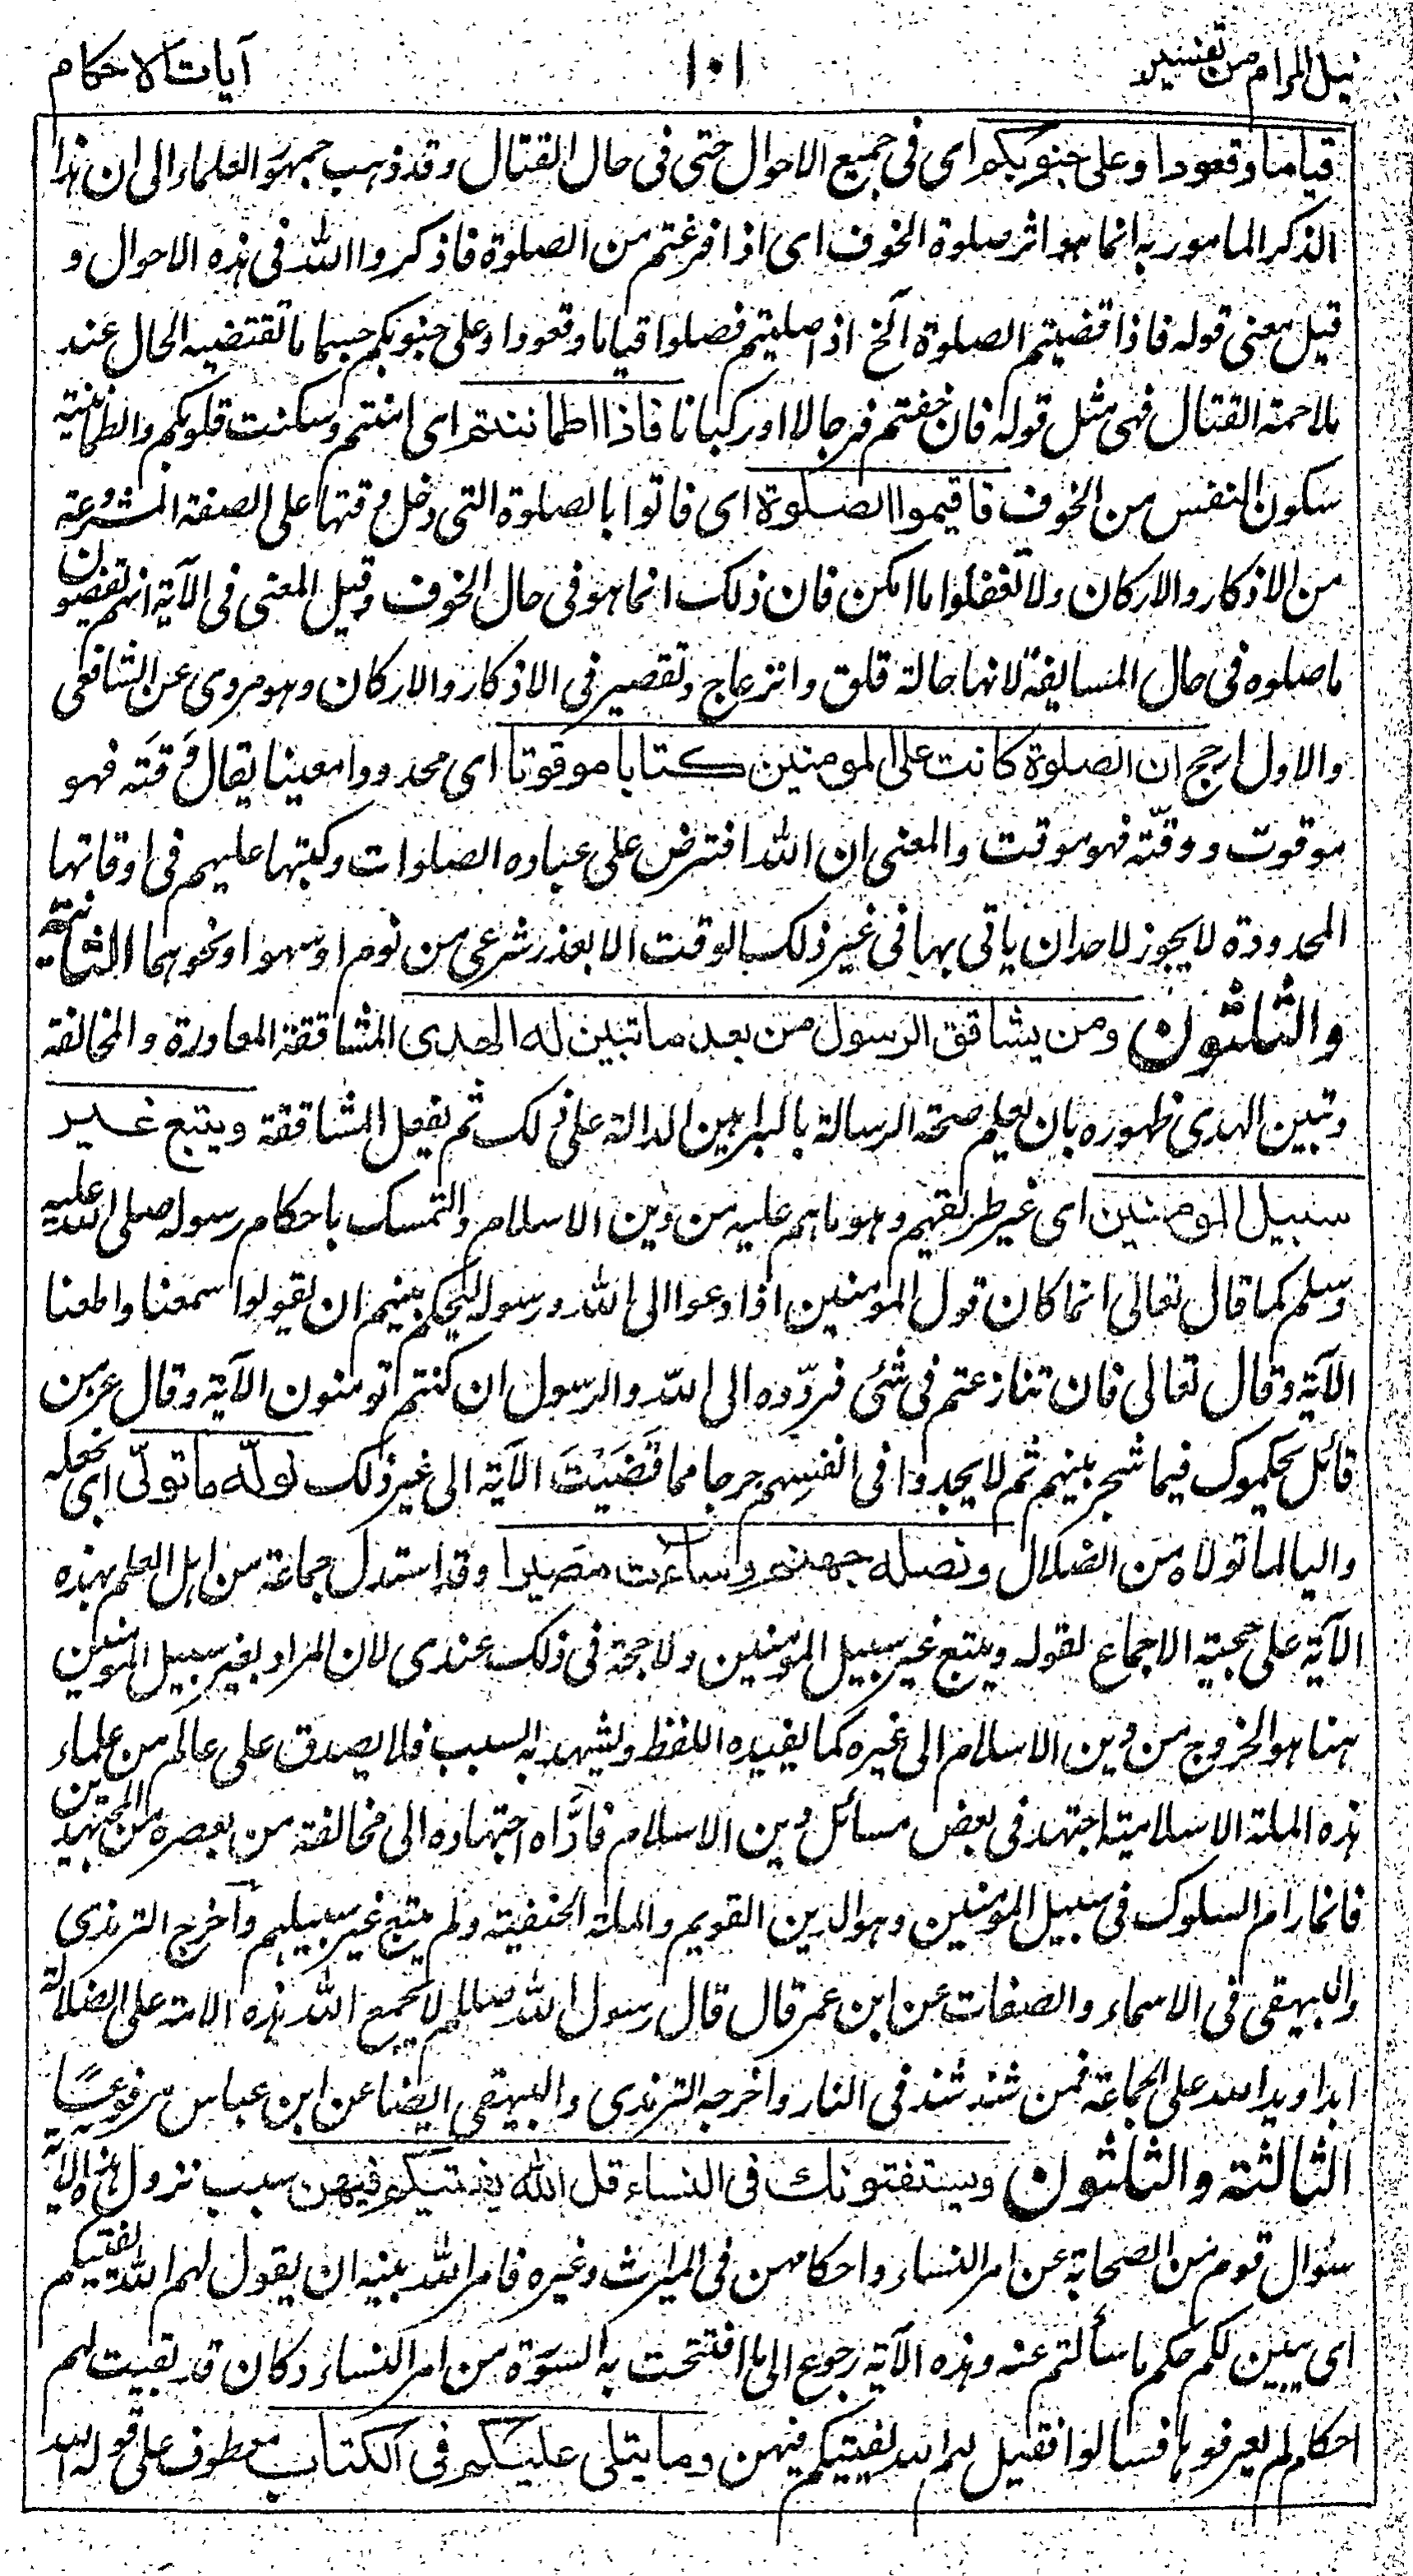 نيل المرام من تفسير
١٠١
آيات الاحكام
قياما وقعودا وعلى جنوبكم اى فى جميع الاحوال حتى فى حال القتال وقد ذهب جمهور العلماء الى ان هذا
الذكر المامور به انما هو اثر صلوة الخوف اى اذا فرغتم من الصلوة فاذكروا الله فى هذه الاحوال و
قيل معنى قوله فاذا قضيتم الصلوة الخ اذا صليتم فصلوا قياما وقعودا وعلى جنوبكم حسبما يقتضيه الحال عند
ملاحمة القتال فهى مثل قوله فان خفتم فرجالا او ركبانا فاذا اطماننتم اى امنتم وسكنت قلوبكم والطمانينة
سكون النفس من الخوف فاقيموا الصلوة اى فاتوا بالصلوة التى دخل وقتها على الصفة المشروعة
من الاذكار والاركان ولا تغفلوا ما امكن فان ذلك انما هو فى حال الخوف وقيل المعنى فى الآية انهم يقضون
ما صلوه فى حال المسايفة لانها حالة قلق وانزعاج وتقصير فى الاذكار والاركان وهو مروى عن الشافعى
والاول ارجح ان الصلوة كانت على المومنين كتابا موقوتا اى محدودا معينا يقال وَقَته فهو
موقوت ووقّته فهو موقت والمعنى ان الله افترض على عباده الصلوات وكتبها عليهم فى اوقاتها
المحدودة لا يجوز لاحد ان ياتى بها فى غير ذلك الوقت الا بعذر شرعى من نوم او سهو او نحوهما الثانية
والثلثون ومن يشاقق الرسول من بعد ما تبين له الهدى المشاققة المعاداة والمخالفة
وتبين الهدى ظهوره بان يعلم صحة الرسالة بالبراهين الدالة على ذلك ثم يفعل المشاققة ويتبع غير
سبيل المومنين اى غير طريقهم وهو ما هم عليه من دين الاسلام والتمسك باحكام رسوله صلى الله عليه
وسلم كما قال تعالى انما كان قول المومنين اذا دعوا الى الله ورسوله ليحكم بينهم ان يقولوا سمعنا واطعنا
الآية وقال تعالى فان تنازعتم فى شئ فردّوه الى الله والرسول ان كنتم تومنون الآية وقال عز من
قائل يحكموك فيما شجر بينهم ثم لا يجدوا فى انفسهم حرجا مما قَضَيْتَ الآية الى غير ذلك نولّه ما تولّى اى نجعله
واليا لما تولاه من الضلال ونصله جهنم وساءت مصيرا وقد استدل جماعة من اهل العلم بهذه
الآية على حجية الاجماع لقوله ويتبع غير سبيل المومنين ولا حجة فى ذلك عندى لان المراد بغير سبيل المومنين
هنا هو الخروج من دين الاسلام الى غيره كما يفيده اللفظ ويشهد به السبب فلا يصدق على عالم من علماء
هذه الملة الاسلامية اجتهد فى بعض مسائل دين الاسلام فادَّاه اجتهاده الى مخالفة من بعصره من المجتهدين
فانما رام السلوك فى سبيل المومنين وهو الدين القويم والملة الحنفية ولم يتبع غير سبيلهم وآخرج الترمذى
والبيهقى فى الاسماء والصفات عن ابن عمر قال قال رسول الله صللم لا يجمع الله هذه الامة على الضلالة
ابدا ويد الله على الجماعة فمن شذ شذ فى النار واخرجه الترمذى والبيهقى ايضا عن ابن عباس مرفوعًا
الثالثة والثلثون ويستفتونك فى النساء قل الله يفتيكم فيهن سبب نزول هذه الآية
سوال قوم من الصحابة عن امر النساء واحكامهن فى الميراث وغيره فامر الله نبيه ان يقول لهم الله يفتيكم
اى يبين لكم حكم ما سألتم عنه وهذه الآية رجوع الى ما افتتحت به السورة من امر النساء وكان قد بقيت لهم
احكام لم يعرفوها فسالوا فقيل لهم الله يفتيكم فيهن وما يتلى عليكم فى الكتاب معطوف على قوله الله